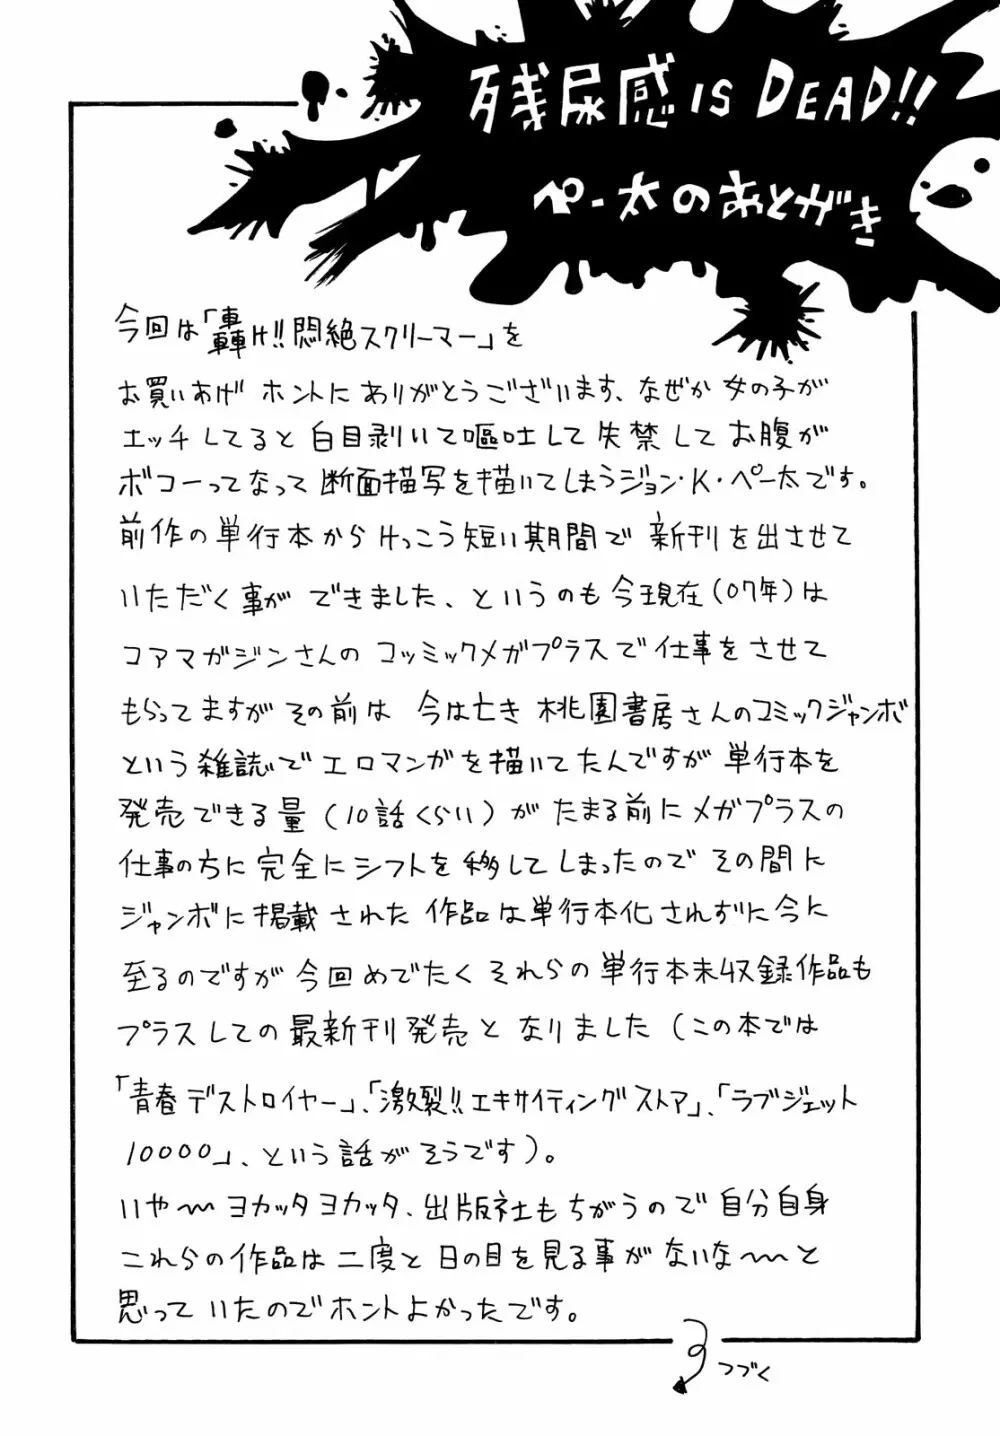 残尿感 IS DEAD!!
ペー太のあとがき
今回は「轟け!!悶絶スクリーマー」を
お買いあげ ホントにありがとうございます、なぜか 女の子が
エッチしてると 白目剥いて嘔吐して 失禁して お腹が
ボコーってなって 断面描写を描いてしまうジョン・K・ペー太です。
前作の単行本から けっこう短い期間で 新刊を出させて
いただく事が できました、というのも今現在(07年)は
コアマガジンさんの コミックメガプラスで仕事をさせて
もらってますが その前は 今は亡き 桃園書房さんのコミックジャンボ
という雑誌で エロマンガを描いてたんですが 単行本を
発売できる量(10話くらい)が たまる前に メガプラスの
仕事の方に 完全にシフトを移してしまったので その間に
ジャンボに掲載された 作品は単行本化されずに今に
至るのですが 今回めでたく それらの単行本未収録作品も
プラスしての最新刊発売と なりました(この本では
「青春デストロイヤー」、「激裂!!エキサイティングストア」、「ラブジェット
10000」、という話がそうです)。
いや〜 ヨカッタヨカッタ、出版社もちがうので 自分自身
これらの作品は二度と 日の目を見る事がないな〜と
思って いたのでホントよかったです。
つづく